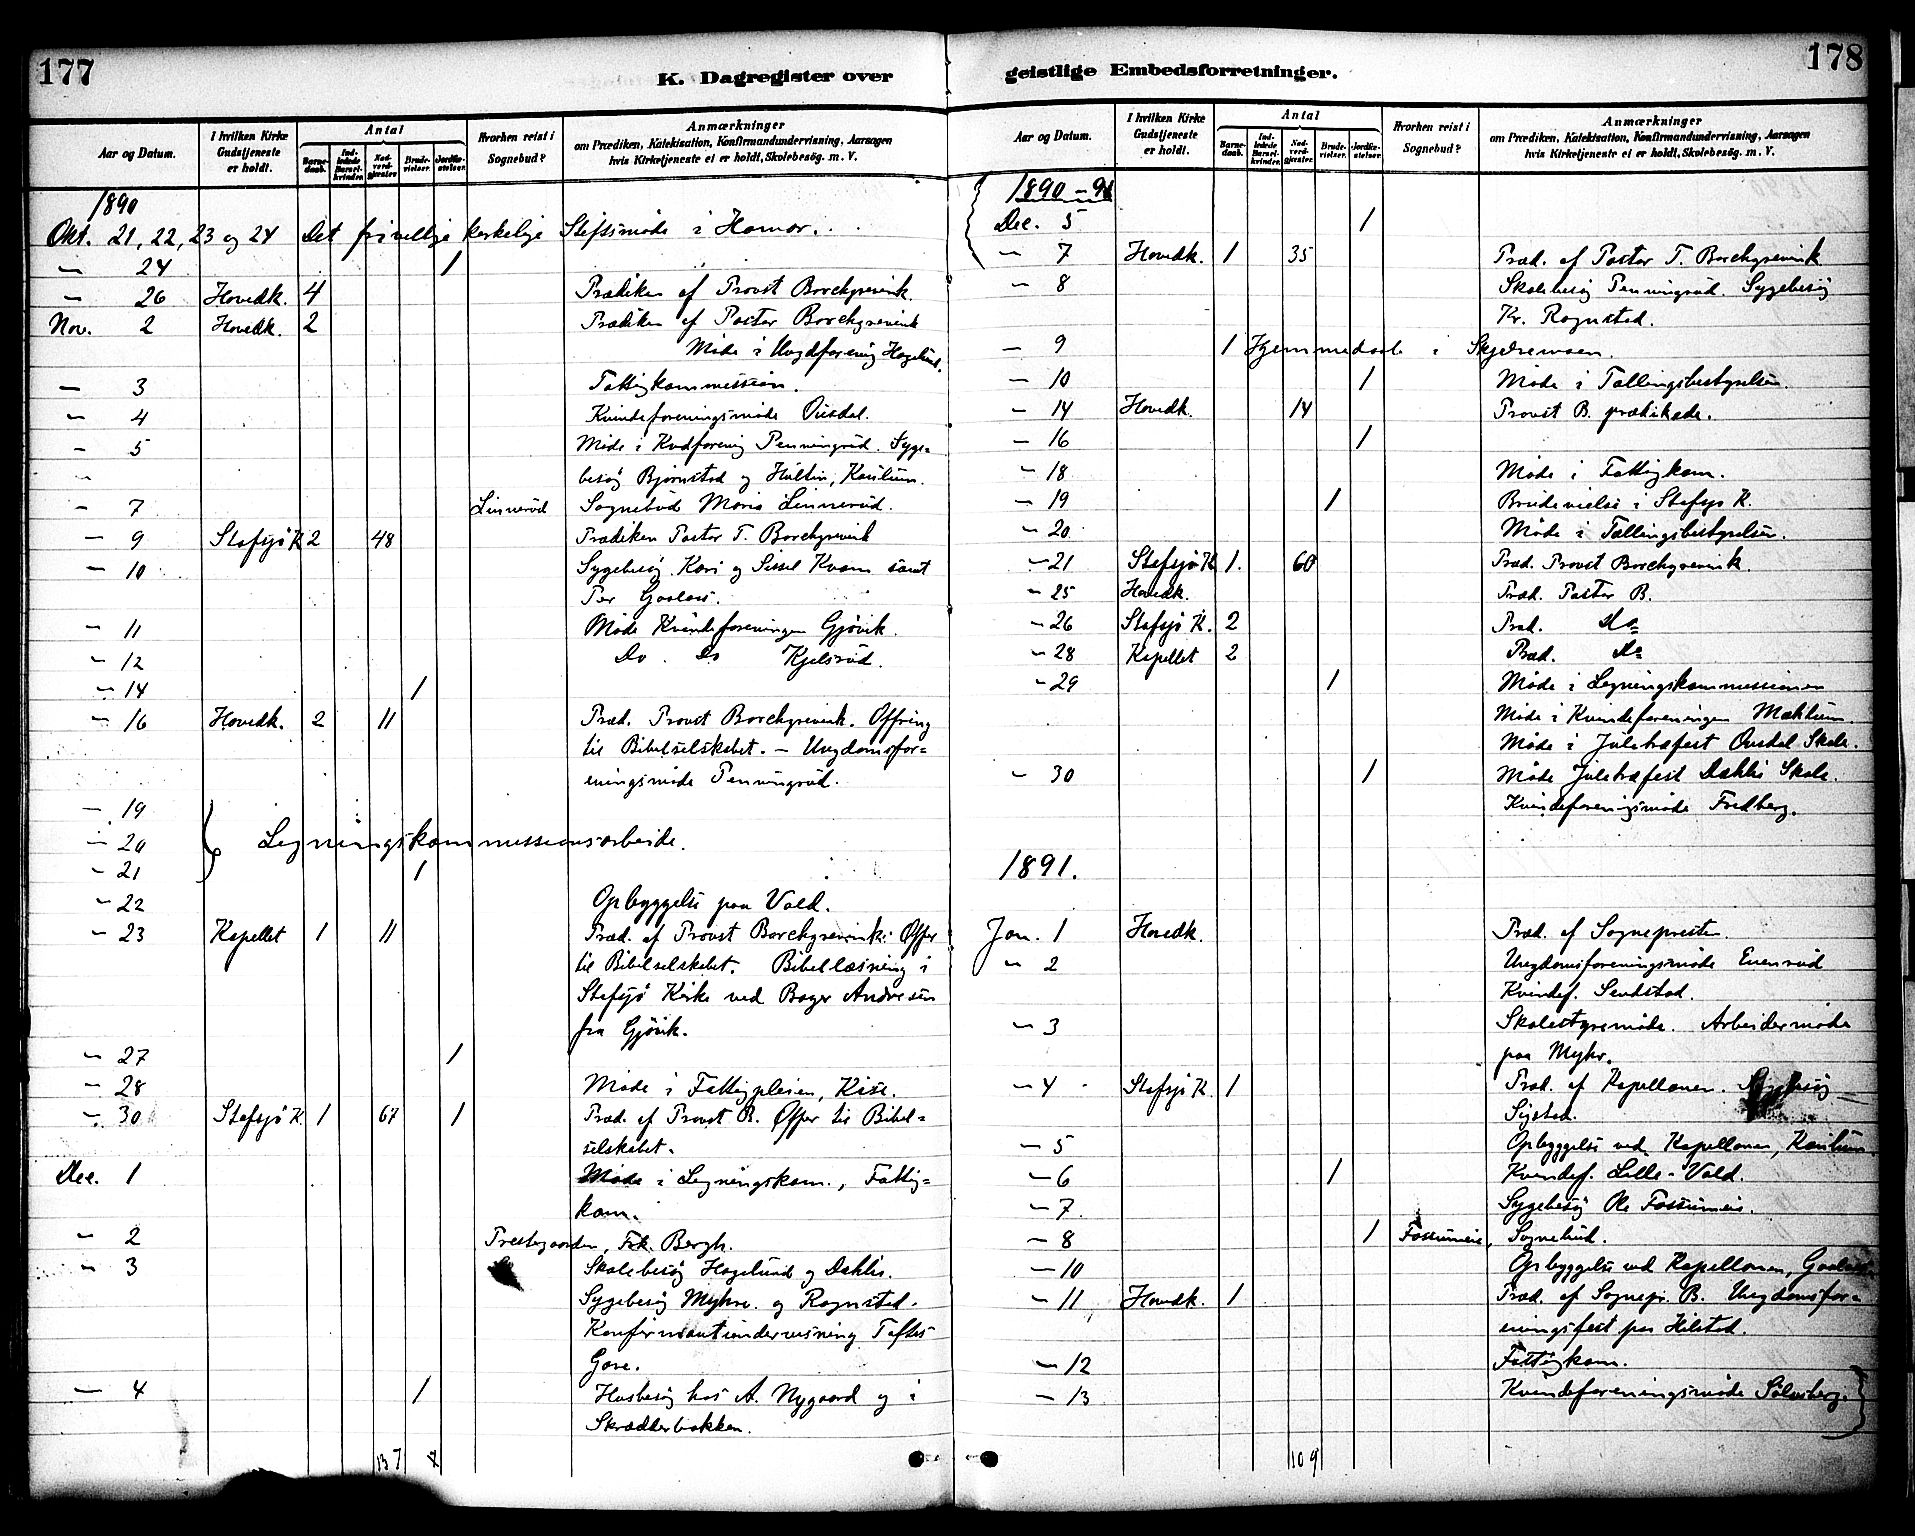 177
K. Dagregister over
Aar og Datum. I hvilken Kirke Gudstjeneste er holdt. Antal Barnedaab. Indledede Barselkvinder. Nadverdgjester Brudevielser. Jordfæstelser. Hvorhen reist i Sognebud? Anmærkninger om Prædiken, Katekisation, Konfirmandundervisning, Aarsagen hvis Kirketjeneste ei er holdt, Skolebesøg. m. V.
1890
Okt. 21, 22, 23 og 24 Det frivellige kirkelige Stiftsmøde i Hamar.
" 24 1
" 26 Hovedk. 4 Prædiken af Provst Borchgrevink.
Nov. 2 Hovedk. 2 Prædiken af Pastor Borchgrevink
Møde i Ungdforening Hagelund.
" 3 Fattigkommission.
" 4 Kvindeforeningsmøde Ousdal.
" 5 Møde i Kvdforenig Penningrud. Syge=
" besøg Bjørnstad og Hultin, Kaulum.
" 7 Linnerud Sognebud Maria Linnerud.
" 9 Stafsjø K 2 48 Prædiken Pastor T. Borchgrevink
" 10 Sygebesøg Kari og Sissel Kvam samt
Per
" 11 Møde Kvindeforeningen Gjøvik.
" 12 Do. Do Kjelsrud.
" 14 1
" 16 Hovedk. 2 11 Præd. Provst Borchgrevink. Offring
til Bibelselskabet. – Ungdomsfor=
eningsmøde Penningrud.
" 19
" 20 Legningskommissionsarbeide.
" 21 1
" 22 Opbyggelse paa Vold.
" 23 Kapellet 1 11 Præd. af Provst Borchgrevink. Offer
til Bibelselskabet. Bibellæsning i
Stafsjø Kirke ved Bager Andersen
fra Gjøvik.
" 27 1
" 28 Møde i Fattigpleien, Kise.
" 30 Stafsjø K. 1 67 1 Præd. af Provst B. Offer til Bibel=
selskabet.
Dec. 1 Møde i Legningskom., Fattig=
kom.
" 2 Prestegaarden, Frk. Bergh.
" 3 Skolebesøg Hagelund og Dahlis.
Sygebesøg Myhre. og Rognstad.
Konfirmantundervisning Toftes
Gave.
" 4 1 Husbesøg hos A. Nygaard og i
Skrædderbakken.
137 4
178
geistlige Embedsforretninger.
Aar og Datum. I hvilken Kirke Gudstjeneste er holdt. Antal Barnedaab. Indledede Barselkvinder. Nadverdgjester Brudevielser. Jordfæstelser. Hvorhen reist i Sognebud? Anmærkninger om Prædiken, Katekisation, Konfirmandundervisning, Aarsagen hvis Kirketjeneste ei er holdt, Skolebesøg. m. V.
1890–91
Dec. 5 1
" 7 Hovedk. 1 35 Præd. af Pastor T. Borchgrevink
" 8 Skolebesøg Penningrud. Sygebesøg
Kr. Rognstad.
" 9 1 Hjemmedaab i Skjelremoen.
" 10 1 Møde i Tællingsbestyrelsen.
" 14 Hovedk. 14 Provst B. prædikede.
" 16 1
" 18 Møde i Fattigkom.
" 19 1 Brudevielse i Stafsjø K.
" 20 Møde i Tællingsbestyrelsen.
" 21 Stafsjø K 1. 60 Præd. Provst Borchgrevink.
" 25 Hovedk. Præd. Pastor B.
" 26 Stafsjø K. 2 Præd. Do
" 28 Kapellet 2 Præd. Do
" 29 1 Møde i Legningskommissionen
Møde i Kvindeforeningen Mæhlum.
Møde i Juletræfest Ousdal Skole.
" 30 1 Møde Juletræfest Dahlis Skole.
Kvindeforeningsmøde Fredberg.
1891.
Jan. 1 Hovedk. Præd. af Sognepresten.
" 2 Ungdomsforeningsmøde Evenrud
Kvindef. Sendstad.
" 3 Skolestyremøde. Arbeidermøde
paa Myhr.
" 4 Stafsjø K. 1 Præd. af Kapellanen. Sygebesøg
Sigstad.
" 5 Opbyggelse ved Kapellanen, Kaulum
" 6 1 Kvindef. Lille-Vold.
" 7 Sygebesøg Ole Fossumeie.
" 8 1 Fossumeie, Sognebud.
" 10 Opbyggelse ved Kapellanen,
" 11 Hovedk. 1 Præd. af Sognepr. B. Ungdomsfor=
eningsfest paa Hilstad.
" 12 Fattigkom.
" 13 Kvindeforeningsmøde Sølvsberg.
109